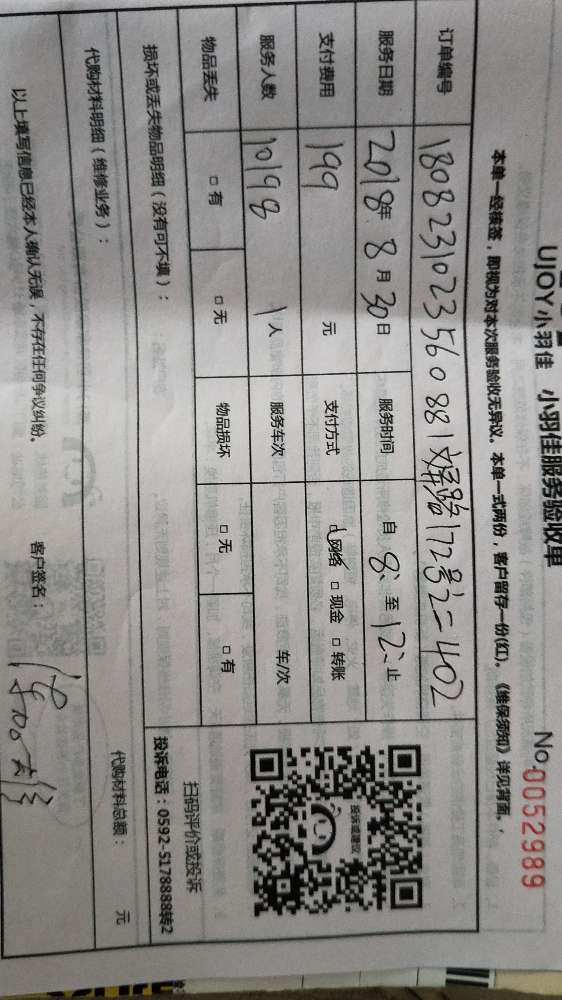 UJOY小羽佳 小羽佳服务验收单
No.0052989
本单一经核签，即视为对本次服务验收无异议。本单一式两份，客户留存一份(红)。《维保须知》详见背面。
订单编号 180823102356088 172号之二402
服务日期 2018年8月30日 服务时间 自 8: 至 12: 止
支付费用 199 元 支付方式 网络 □ 现金 □ 转账
服务人数 10198 1人 服务车次 车/次
物品丢失 □ 有 □ 无 物品损坏 □ 无 □ 有
投诉或建议
扫码评价或投诉
投诉电话：0592-5178888转2
损坏或丢失物品明细（没有可不填）：
代购材料明细（维修业务）： 代购材料总额： 元
以上填写信息已经本人确认无误，不存在任何争议纠纷。 客户签名：